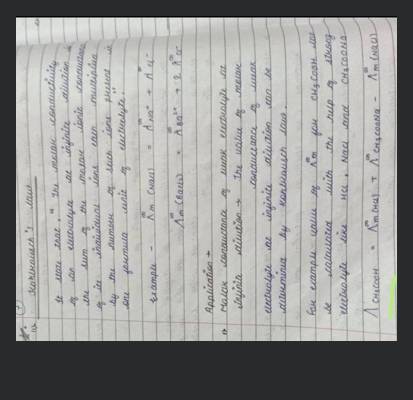 Kohlrausch's Law
It state that, "The molar conductivity
of an electrolyte at infinite dilution is
the sum of the molar ionic conductance
of its individual ions each multiplied
by the number of such ions present in
one formula unit of electrolyte."
Example - Λ°m (NaCl) = Λ°Na+ + Λ°Cl-
Λ°m (BaCl2) = Λ°Ba2+ + 2 Λ°Cl-
Application →
Molar conductance of weak electrolyte at
infinite dilution → The value of molar
conductance of weak
electrolyte at infinite dilution can be
determined by Kohlrausch law.
For example value of Λ°m for CH3COOH can
be calculated with the help of strong
electrolyte like HCl, NaCl and CH3COONa
Λ CH3COOH = Λ°m (HCl) + Λ°CH3COONa - Λ°m (NaCl)